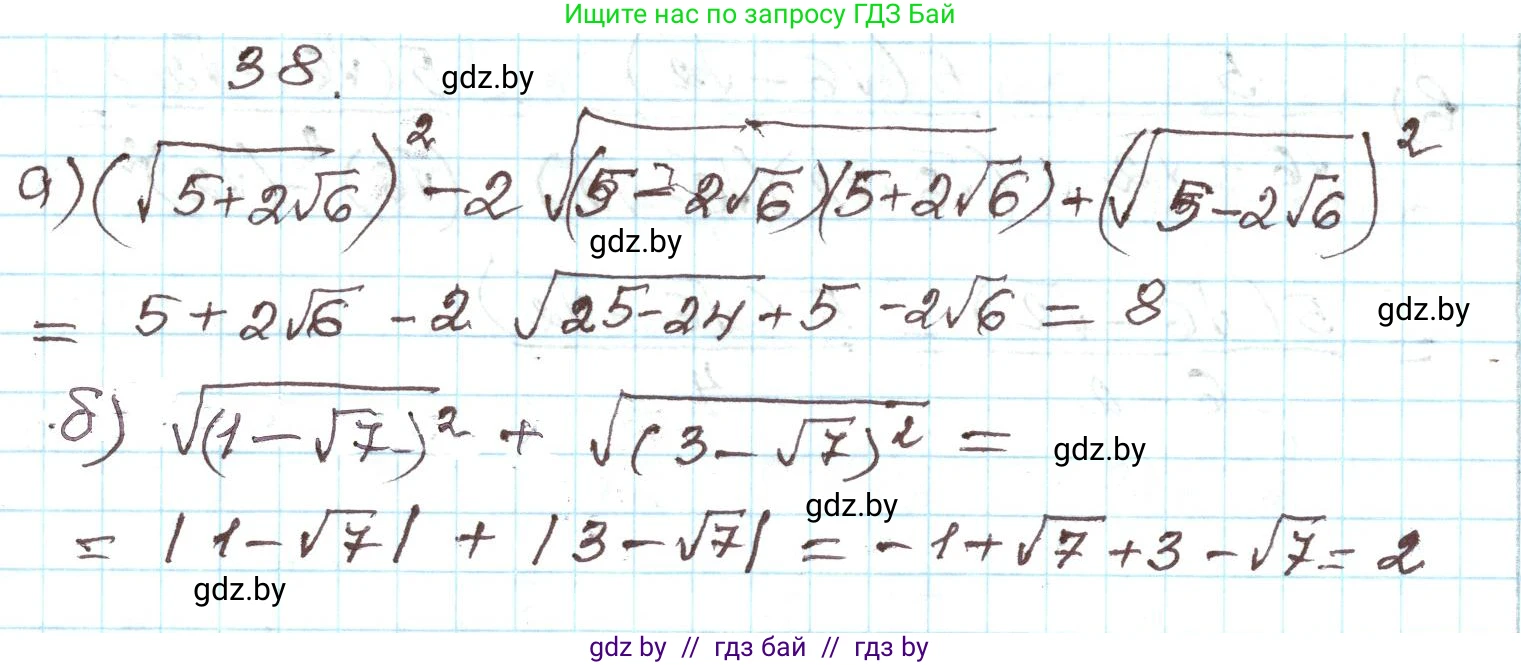 Ищите нас по запросу ГДЗ Бай
38. gdz.by
а) (√(5+2√6))² - 2√((5-2√6)(5+2√6)) + (√(5-2√6))²
gdz.by
= 5+2√6 - 2 √(25-24) + 5 - 2√6 = 8 gdz.by
б) √((1-√7)²) + √((3-√7)²) = gdz.by
gdz.by
= |1-√7| + |3-√7| = -1+√7+3-√7 = 2
gdz.by
gdz by // гдз бай // гдз by